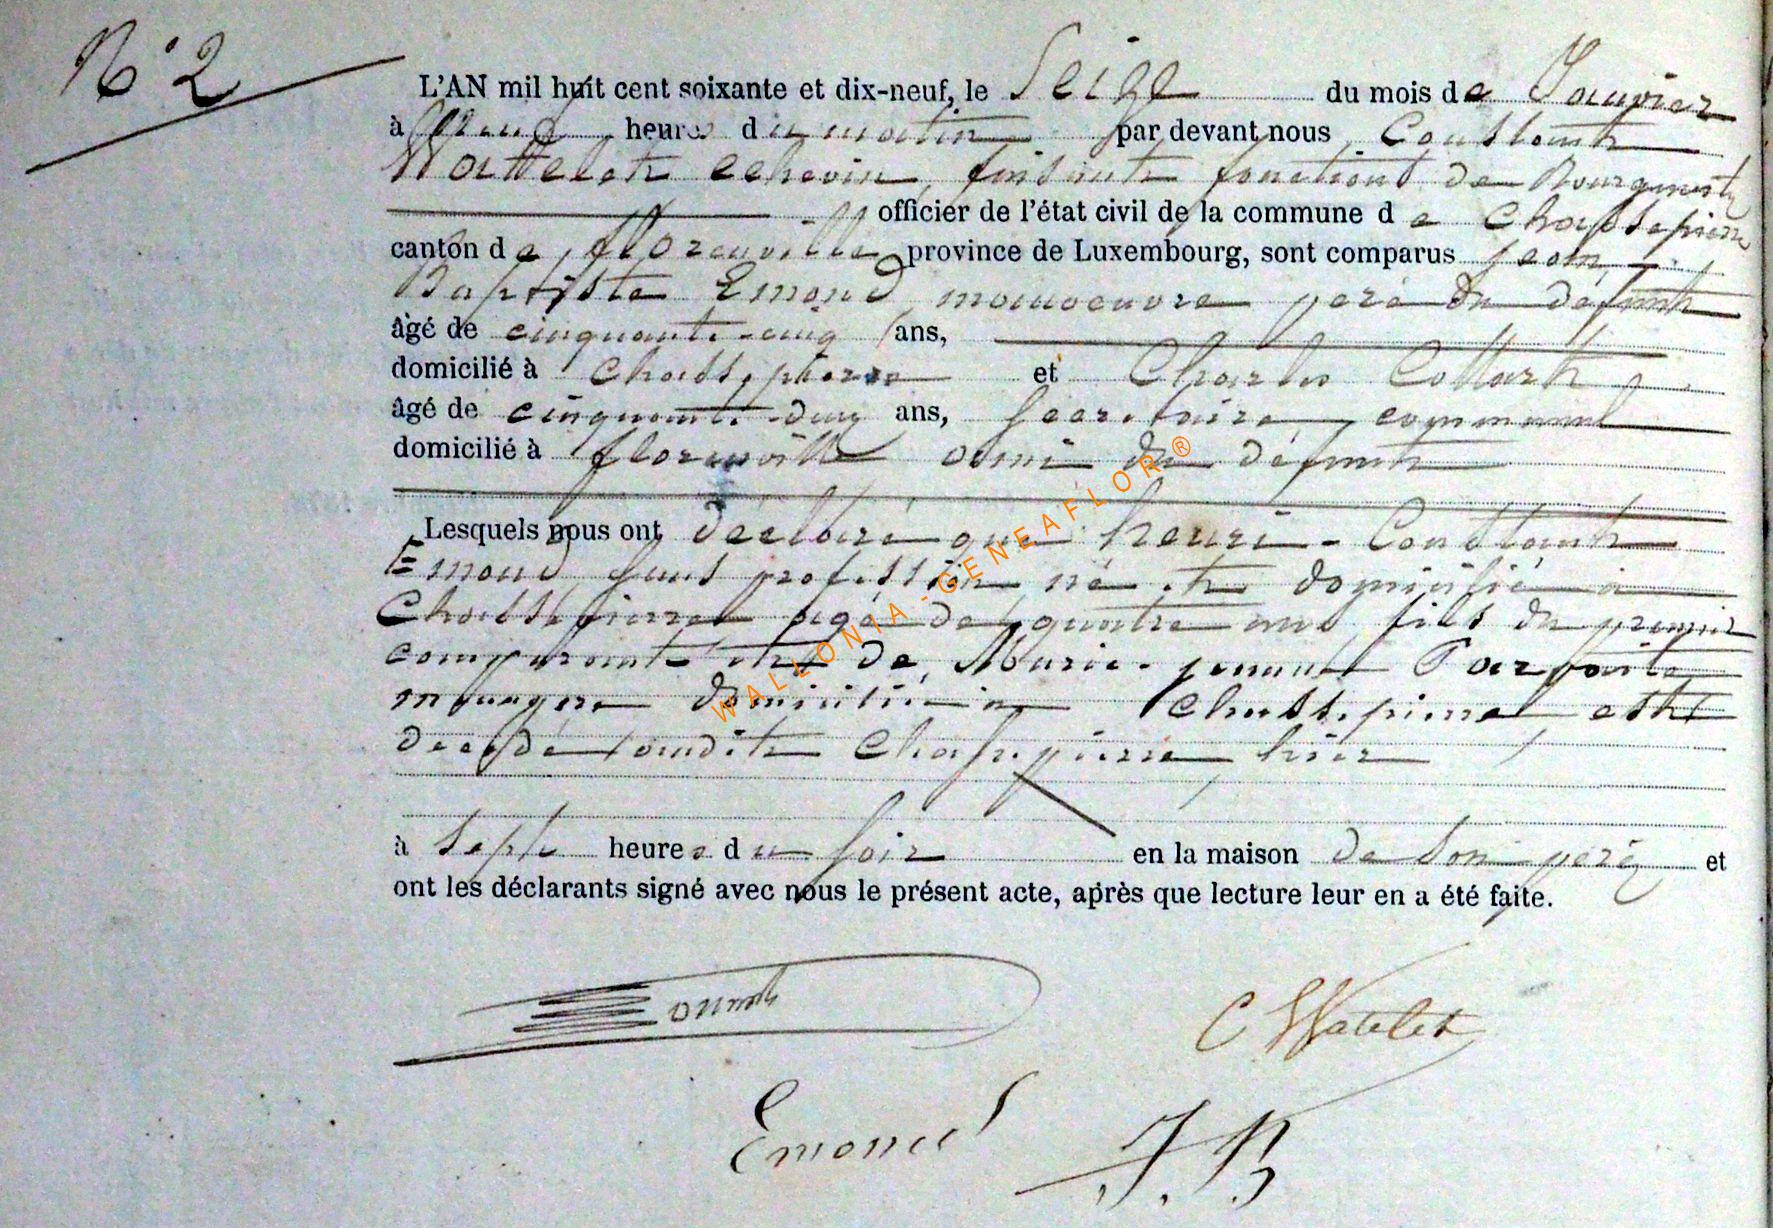 N° 2
L'AN mil huit cent soixante et dix-neuf, le Seize du mois de Janvier
à neuf heures du matin par devant nous Constant
Wattelet echevin, faisant fonctions de Bourgmestre
officier de l'état civil de la commune de Chassepierre
canton de florenville province de Luxembourg, sont comparus jean
Baptiste Emond, manoeuvre pere du défunt
âgé de cinquante-cinq ans,
domicilié à Chassepierre et Charles Collart,
âgé de cinquante-deux ans, Secretaire communal
domicilié à florenville ami du défunt
Lesquels nous ont déclaré que henri-Constant
Emond, sans profession né et domicilié à
Chassepierre agé de quatre ans fils du premier
comparant et de Marie-jeanne Parfaite
menagere domiciliée à Chassepierre est
decedé audit Chassepierre, hier
à sept heures du soir en la maison de son père et
ont les déclarants signé avec nous le présent acte, après que lecture leur en a été faite.
C Watelet
Emond J.B
WALLONIA-GENEAFLOR®